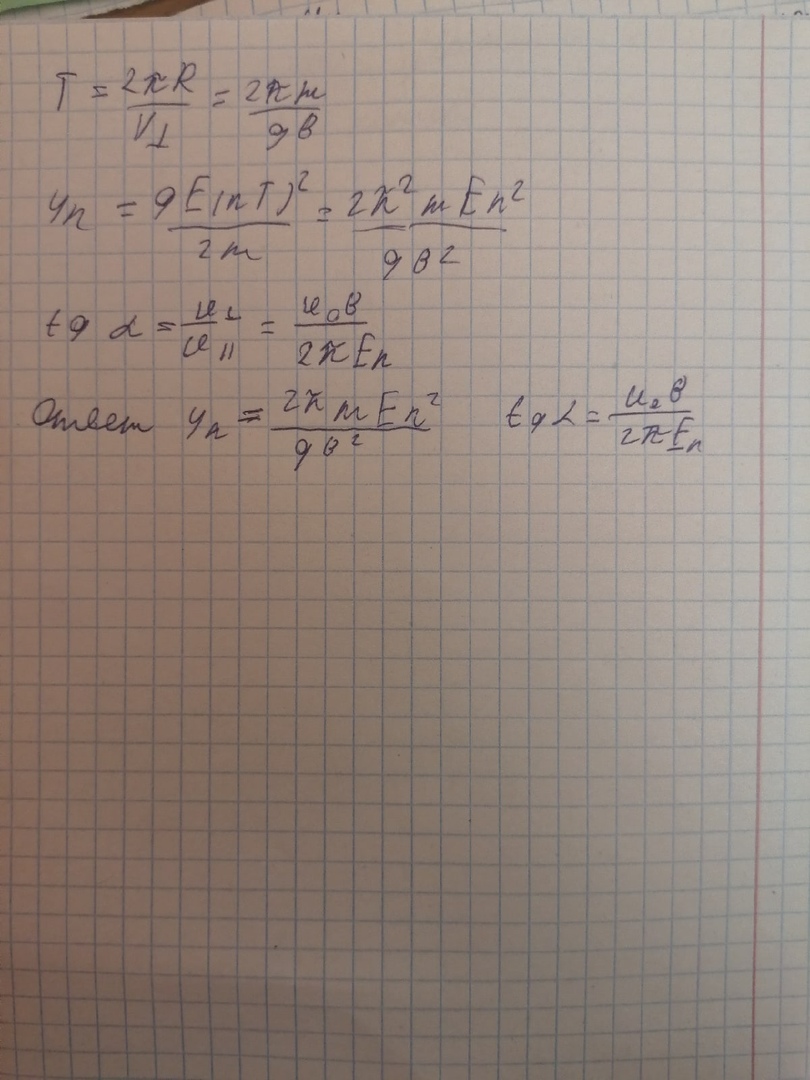 T = 2πR/V⊥ = 2πm/qB
yn = qE(nT)²/2m = 2π²mEn²/qB²
tg α = u⊥/u|| = u₀B/2πEn
Ответ yn = 2πmEn²/qB² tg α = u₀B/2πEn